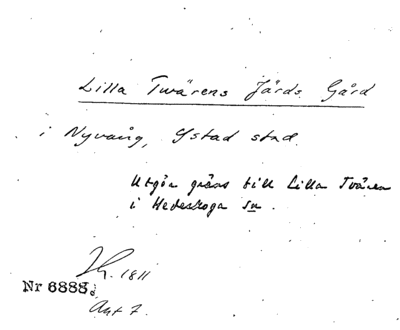 Lilla Twärens Järds Gård
i Nyvång, Ystad stad.
Utgör gräns till Lilla Tvären
i Hedeskoga sn.
1811
Nr 6888.
Akt 7.